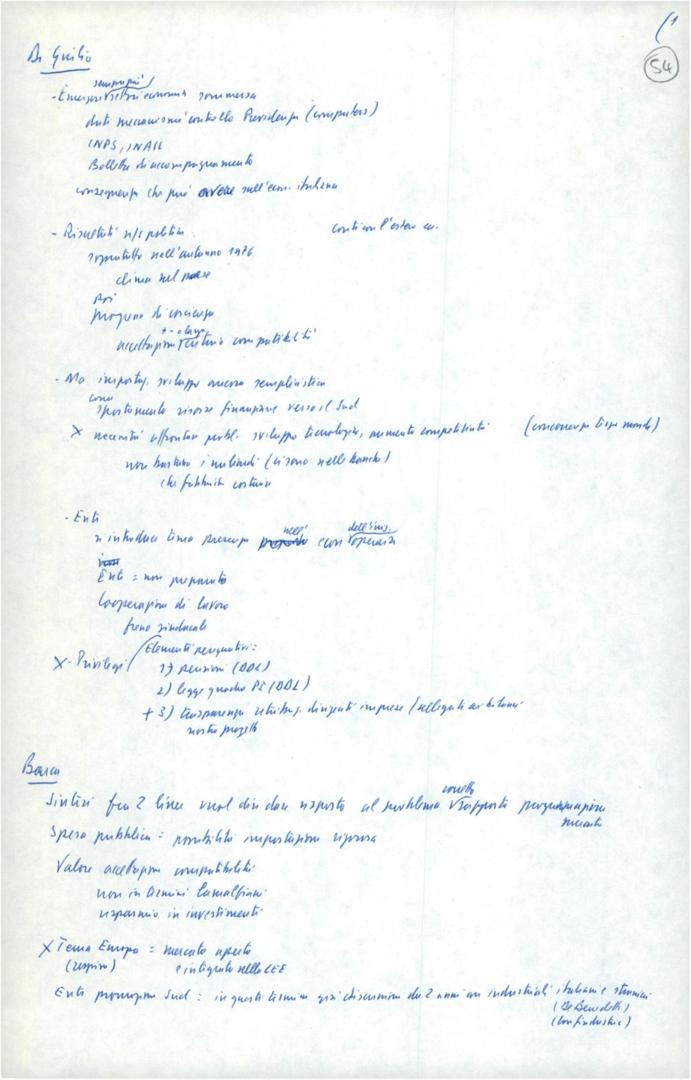 (1
54
Di Giulio
sempre più
- Emergere settori economia sommersa
dati meccanismi controllo Previdenza (computers)
INPS, INAIL
Bollette di accompagnamento
conseguenza che può avere sull'econ. italiana
- Risultati n/s politica
conti con l'estero ecc.
soprattutto nell'autunno 1976
clima nel paese
Poi
di coscienza
+ - o larga
accettazione criterio compatibilità
- Ma impostaz. sviluppo ancora semplicistica
come
spostamento risorse finanziarie verso il Sud
X necessità affrontare probl. sviluppo tecnologico, aumento competitività (concorrenza terzo mondo)
non bastano i miliardi (ci sono nelle banche)
che fabbriche costruire
- Enti
si introduce tema presenza nell' econ. dell'ins. operaia
Enti = non preparato
Cooperazione di lavoro
freno sindacale
X - Privilegi Elementi perequativi:
1) pensioni (DDL)
2) legge quadro PI (DDL)
+ 3) trasparenza retribuz. dirigenti imprese (allegati ai bilanci
nostro progetto
Barca
Sintesi fra 2 linee vuol dire dare risposta al problema corretto rapporto programmazione
mercato
Spesa pubblica = possibilità impostazione rigorosa
Valore accettazione compatibilità
non in termini lamalfiani
risparmio in investimenti
X Tema Europa = mercato aperto
(respiro) e integrato nella CEE
Ente promozione Sud = in questi termini già discussione da 2 anni con industriali italiani e stranieri
(De Benedetti)
(Confindustria)